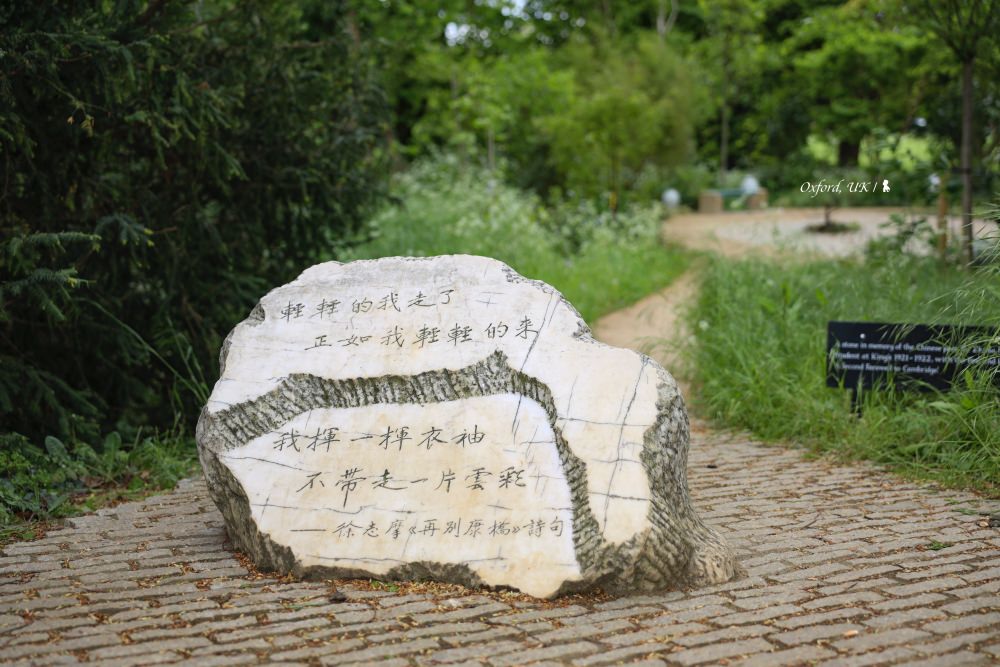 輕輕的我走了
正如我輕輕的來
我揮一揮衣袖
不帶走一片雲彩
——徐志摩《再別康橋》詩句
Oxford, UK |
A stone in memory of the Chinese
student at King's 1921-1922, w
Second farewell to Cambridge'